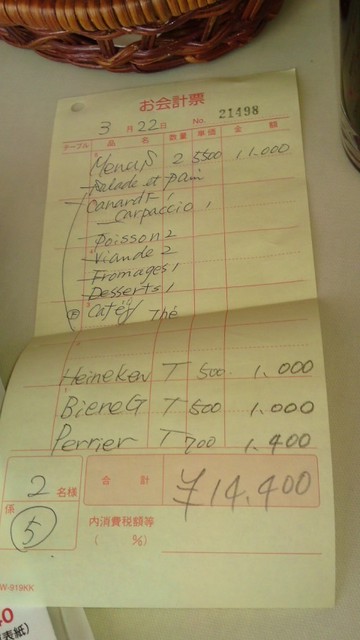 お会計票
3月22日 No. 21498
テーブル 品名 数量 単価 金額
Menu S 2 5500 11.000
Salade et pain
Canard 1
Carpaccio 1
Poisson 2
Viande 2
Fromages 1
Desserts 1
Cafés/ Thé
Heineken T 500. 1.000
Biere G T 500 1.000
Perrier T 700 1.400
2名様 合計 ¥14.400
係 内消費税額等
5 ( %)
W-919KK
表紙)